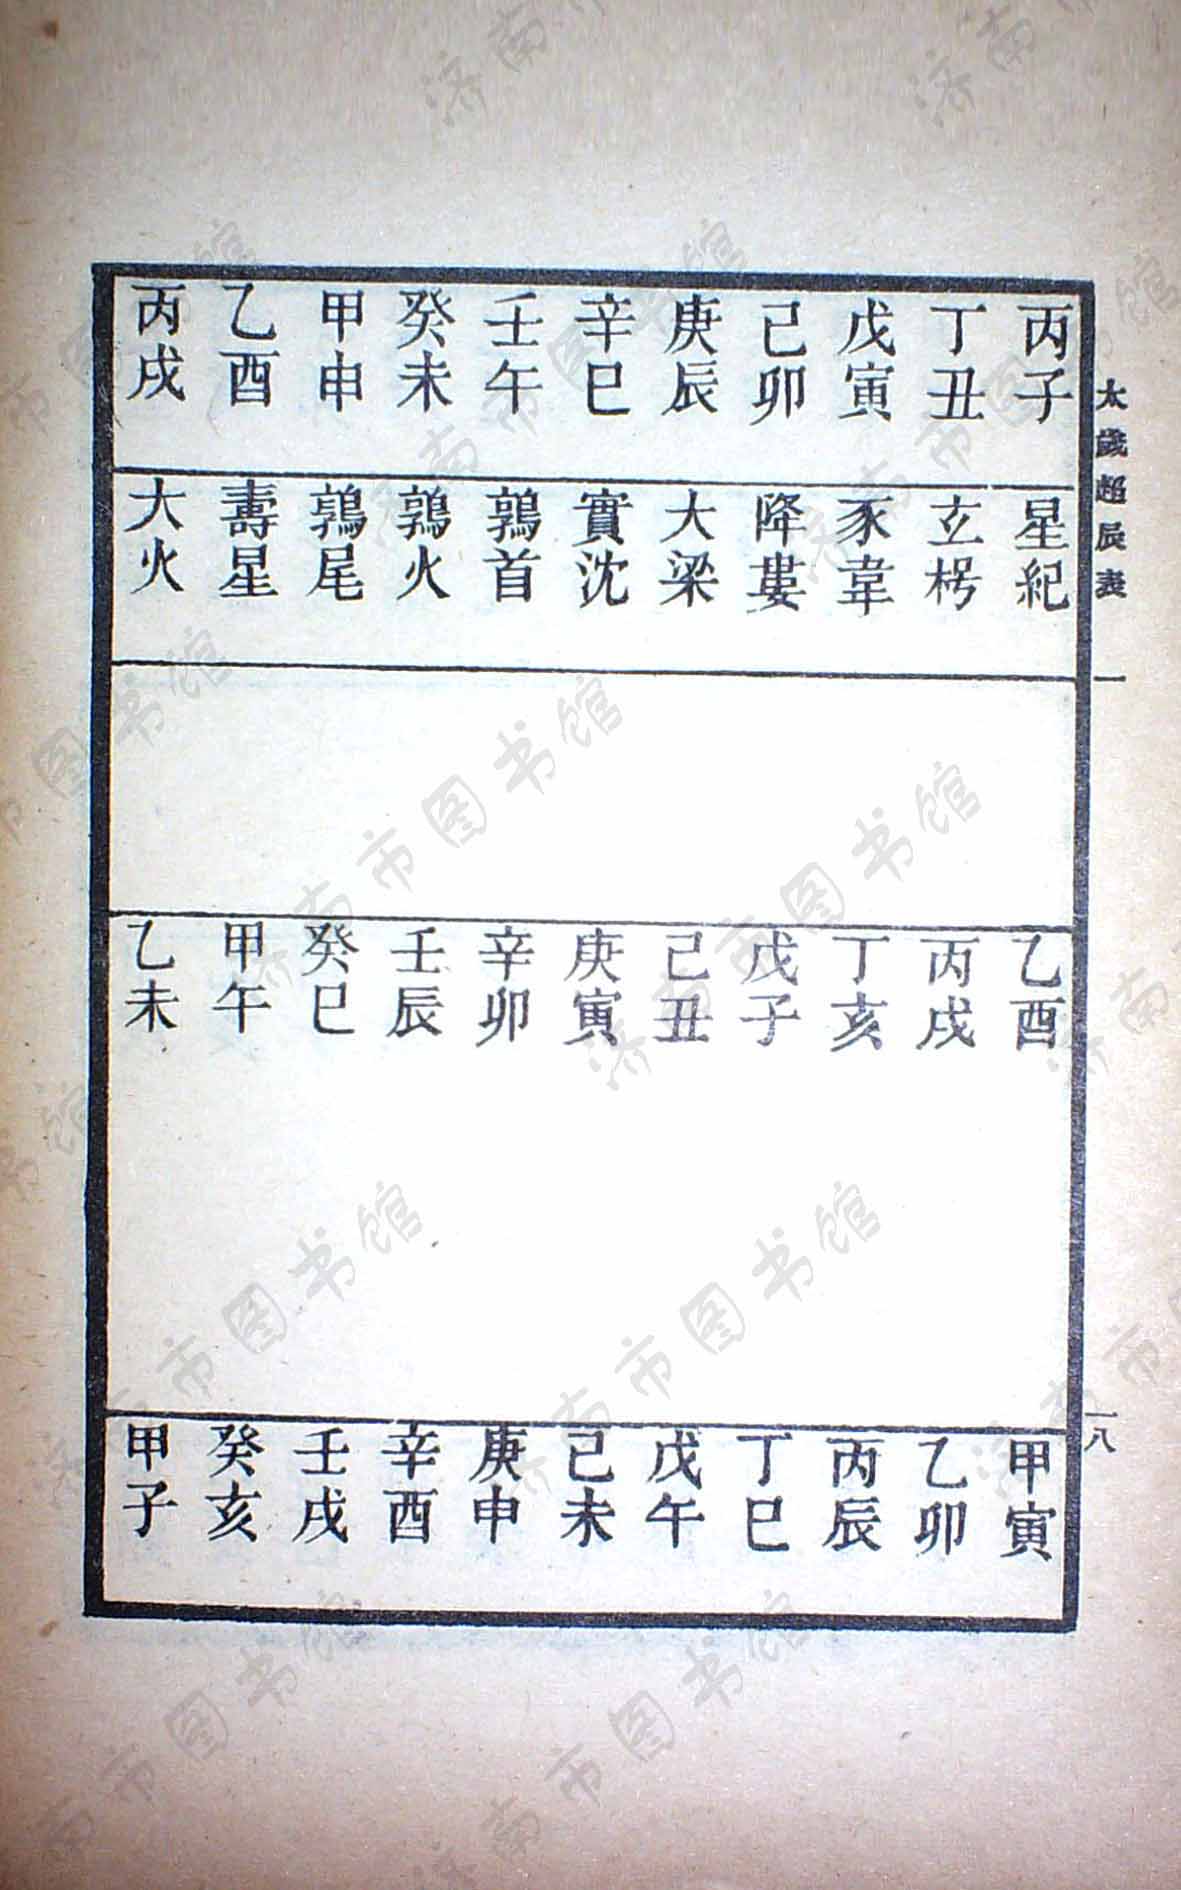 太歲超辰表 一 一八
丙子 丁丑 戊寅 己卯 庚辰 辛巳 壬午 癸未 甲申 乙酉 丙戌
星紀 玄枵 豕韋 降婁 大梁 實沈 鶉首 鶉火 鶉尾 壽星 大火
乙酉 丙戌 丁亥 戊子 己丑 庚寅 辛卯 壬辰 癸巳 甲午 乙未
甲寅 乙卯 丙辰 丁巳 戊午 己未 庚申 辛酉 壬戌 癸亥 甲子
济南市图书馆